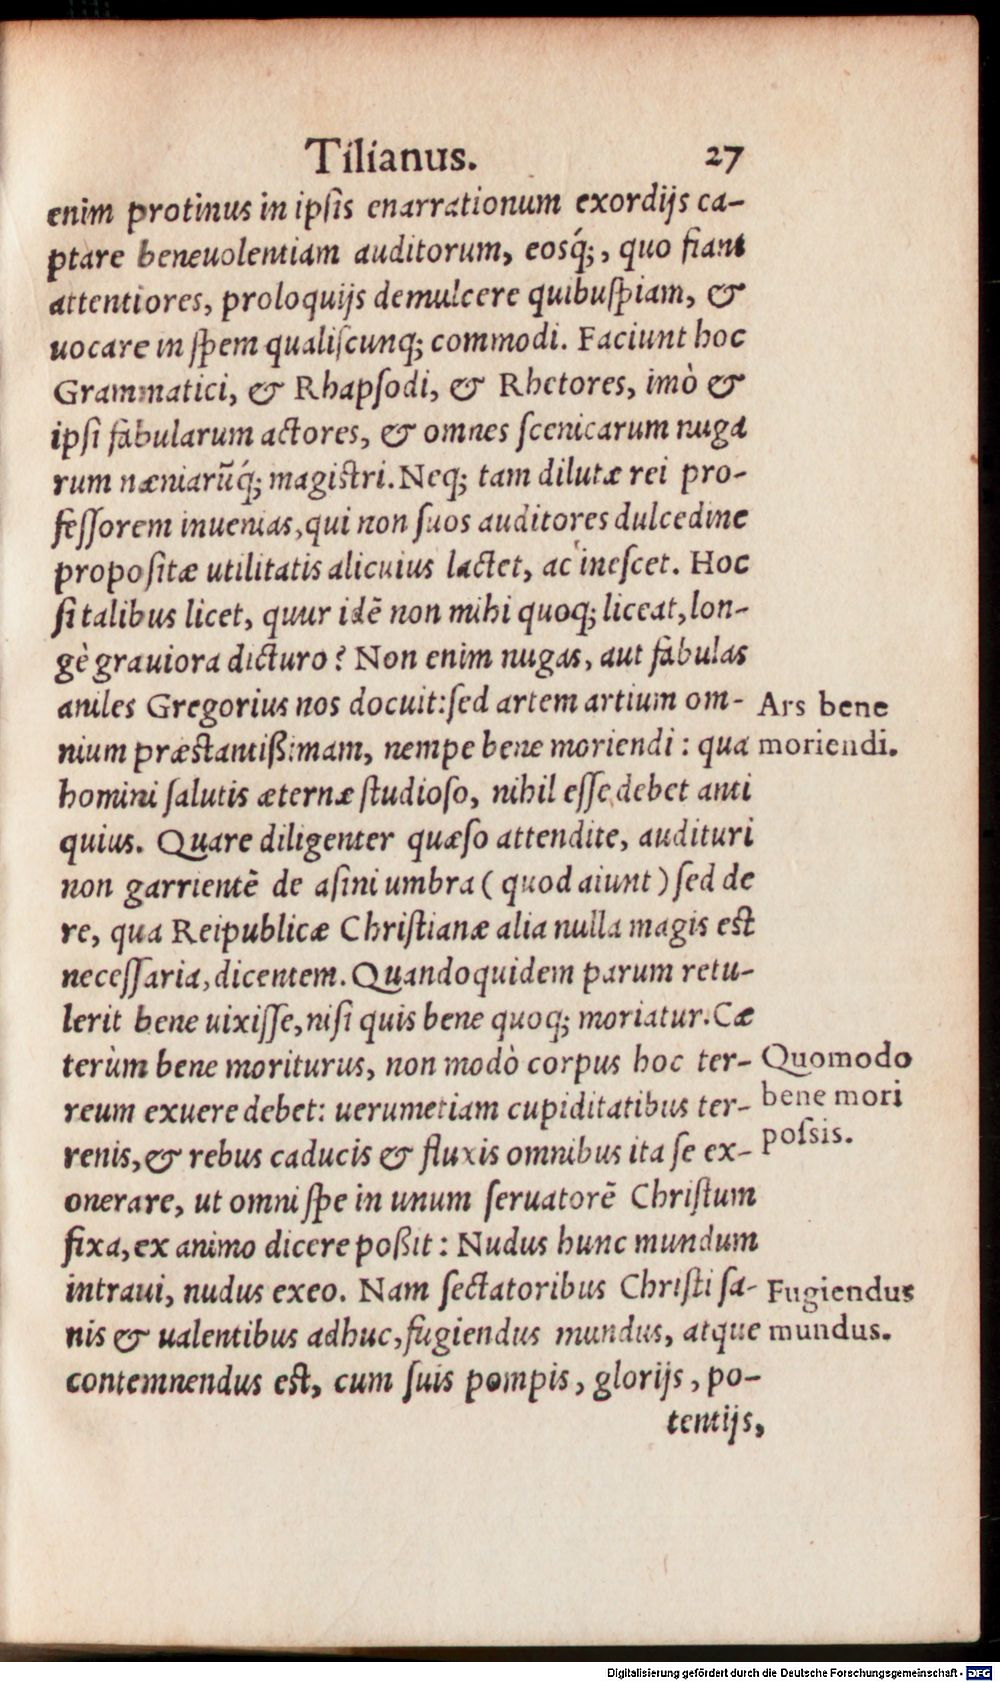 Tilianus. 27
enim protinus in ipſis enarrationum exordijs ca-
ptare beneuolentiam auditorum, eosq́;, quo fiant
attentiores, proloquijs demulcere quibuſpiam, &
uocare in ſpem qualiſcunq; commodi. Faciunt hoc
Grammatici, & Rhapſodi, & Rhetores, imò &
ipſi fabularum actores, & omnes ſcenicarum nuga
rum næniarũq́; magiſtri. Neq; tam dilutæ rei pro-
feſſorem inuenias, qui non ſuos auditores dulcedine
propoſitæ utilitatis alicuius lactet, ac ineſcet. Hoc
ſi talibus licet, quur idẽ non mihi quoq; liceat, lon-
gè grauiora dicturo? Non enim nugas, aut fabulas
aniles Gregorius nos docuit: ſed artem artium om-
nium præſtantißimam, nempe bene moriendi: qua
homini ſalutis æternæ ſtudioſo, nihil eſſe debet anti
quius. Quare diligenter quæſo attendite, audituri
non garrientẽ de aſini umbra (quod aiunt) ſed de
re, qua Reipublicæ Chriſtianæ alia nulla magis eſt
neceſſaria, dicentem. Quandoquidem parum retu-
lerit bene uixiſſe, niſi quis bene quoq; moriatur. Cæ
terùm bene moriturus, non modò corpus hoc ter-
reum exuere debet: uerumetiam cupiditatibus ter-
renis, & rebus caducis & fluxis omnibus ita ſe ex-
onerare, ut omni ſpe in unum ſeruatorẽ Chriſtum
fixa, ex animo dicere poßit: Nudus hunc mundum
intraui, nudus exeo. Nam ſectatoribus Chriſti ſa-
nis & ualentibus adhuc, fugiendus mundus, atque
contemnendus eſt, cum ſuis pompis, glorijs, po-
tentijs,
Ars bene
moriendi.
Quomodo
bene mori
poſsis.
Fugiendus
mundus.
Digitalisierung gefördert durch die Deutsche Forschungsgemeinschaft - DFG